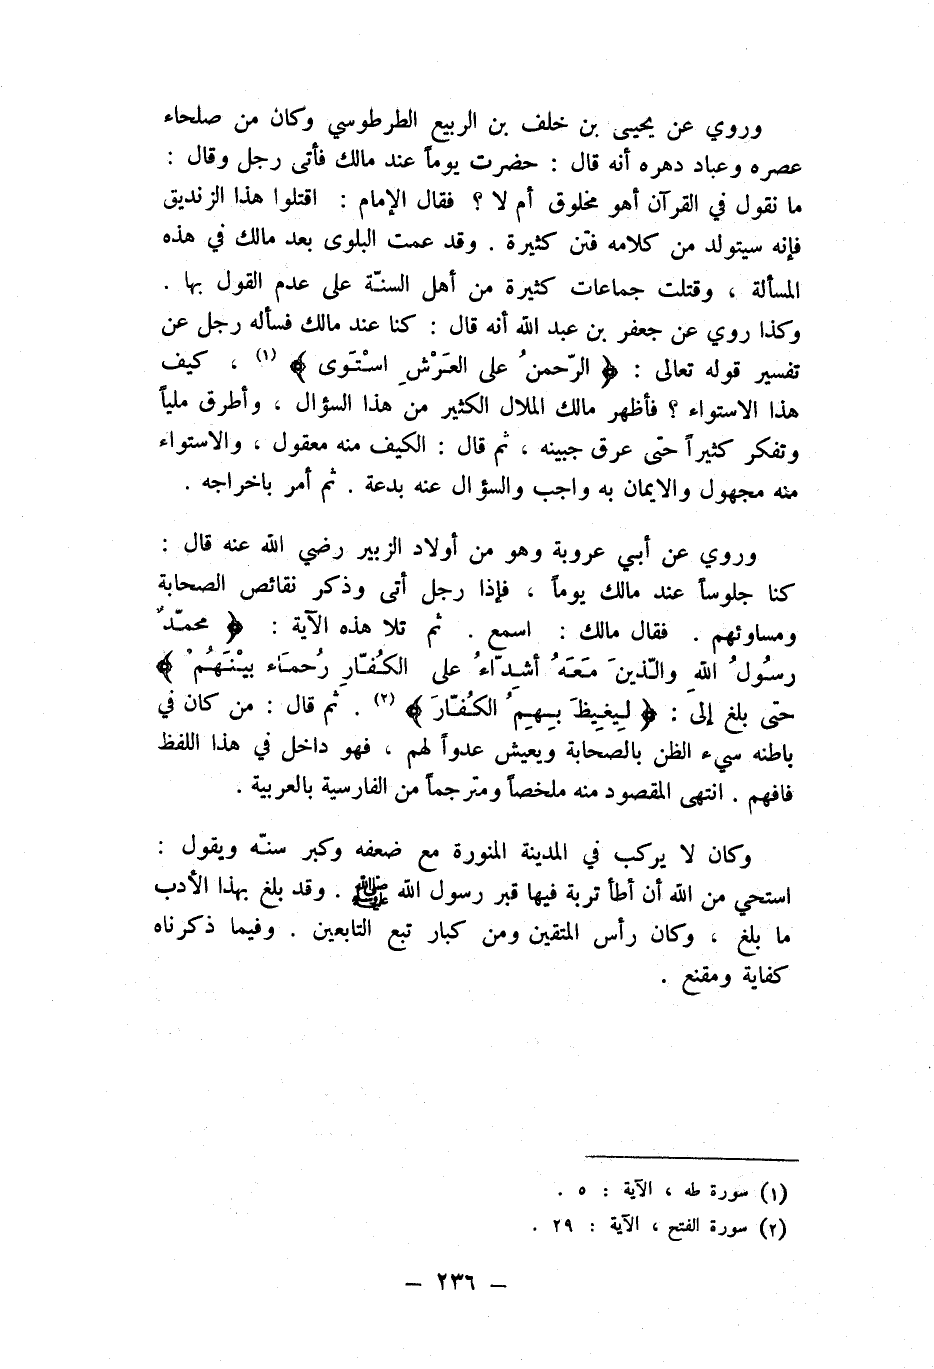 وروي عن يحيى بن خلف بن الربيع الطرطوسي وكان من صلحاء
عصره وعباد دهره أنه قال : حضرت يوماً عند مالك فأتى رجل وقال :
ما نقول في القرآن أهو مخلوق أم لا ؟ فقال الإمام : اقتلوا هذا الزنديق
فإنه سيتولد من كلامه فتن كثيرة . وقد عمت البلوى بعد مالك في هذه
المسألة ، وقتلت جماعات كثيرة من أهل السنّة على عدم القول بها .
وكذا روي عن جعفر بن عبد الله أنه قال : كنا عند مالك فسأله رجل عن
تفسير قوله تعالى : ﴿ الرّحمنُ على العَرْشِ اسْتَوى ﴾ (١) ، كيف
هذا الاستواء ؟ فأظهر مالك الملال الكثير من هذا السؤال ، وأطرق ملياً
وتفكر كثيراً حتى عرق جبينه ، ثم قال : الكيف منه معقول ، والاستواء
منه مجهول والايمان به واجب والسؤال عنه بدعة . ثم أمر باخراجه .
وروي عن أبي عروبة وهو من أولاد الزبير رضي الله عنه قال :
كنا جلوساً عند مالك يوماً ، فإذا رجل أتى وذكر نقائص الصحابة
ومساوئهم . فقال مالك : اسمع . ثم تلا هذه الآية : ﴿ محمّدٌ
رسُولُ اللهِ والّذينَ مَعَهُ أشِدّاءُ على الكُفّارِ رُحمَاء بيْنَهُمْ ﴾
حتى بلغ إلى : ﴿ لِيغِيظَ بِهِمُ الكُفّارَ ﴾ (٢) . ثم قال : من كان في
باطنه سيء الظن بالصحابة ويعيش عدواً لهم ، فهو داخل في هذا اللفظ
فافهم . انتهى المقصود منه ملخصاً ومترجماً من الفارسية بالعربية .
وكان لا يركب في المدينة المنورة مع ضعفه وكبر سنّه ويقول :
استحي من الله أن أطأ تربة فيها قبر رسول الله ﷺ . وقد بلغ بهذا الأدب
ما بلغ ، وكان رأس المتقين ومن كبار تبع التابعين . وفيما ذكرناه
كفاية ومقنع .
(١) سورة طه ، الآية : ٥ .
(٢) سورة الفتح ، الآية : ٢٩ .
– ٢٣٦ –